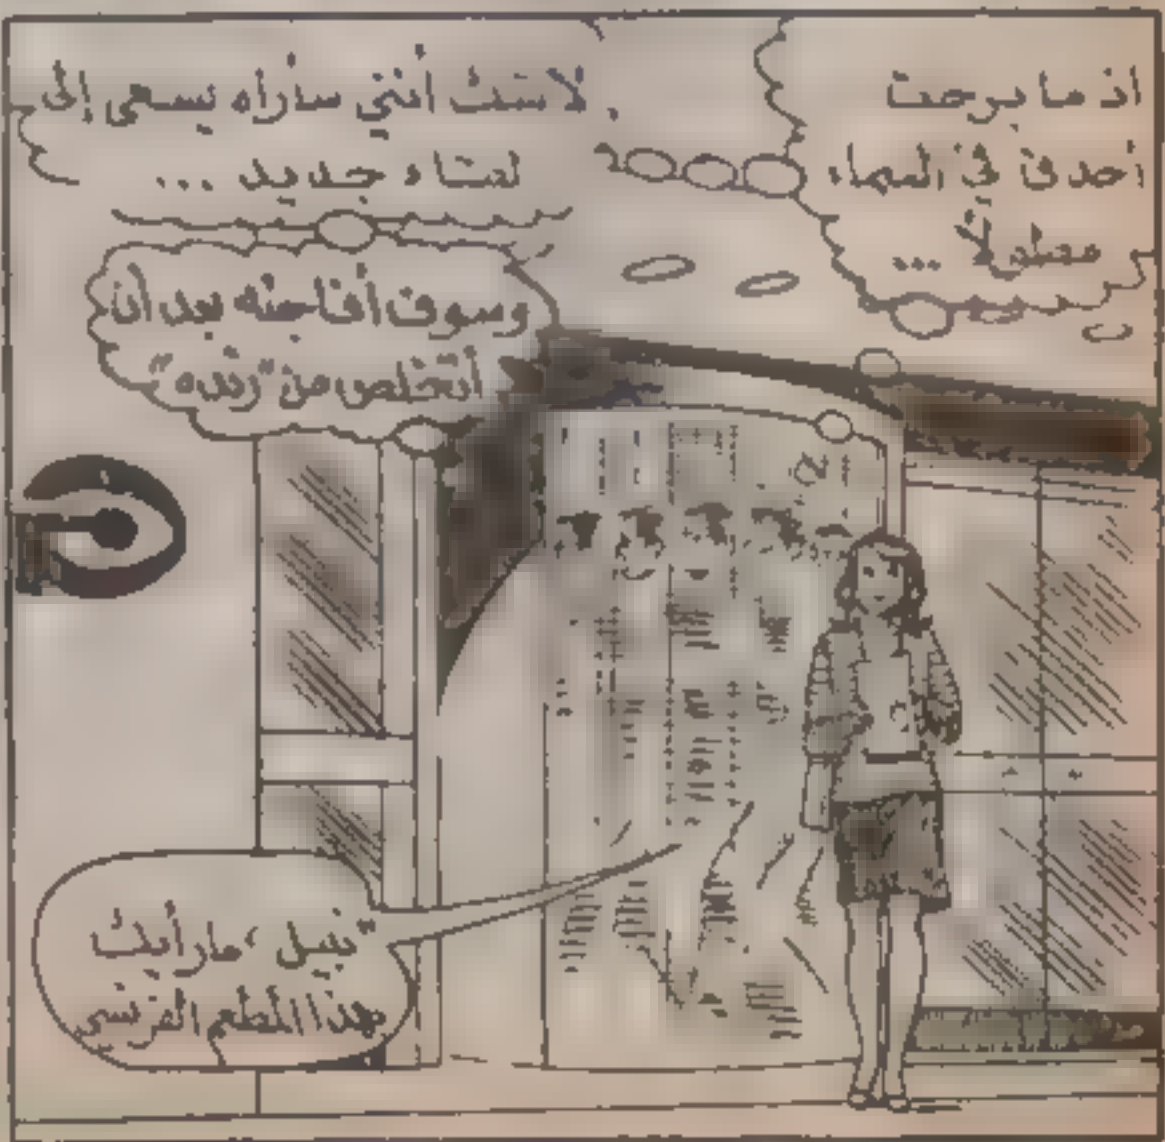 اذ ما برحت
أحدق في السماء
مطولاً ...
لا شك أنني سأراه يسعى إلى
لقاء جديد ...
وسوف أفاجئه بعد أن
أتخلص من "رنده"
"نبيل، ما رأيك
بهذا المطعم الفرنسي